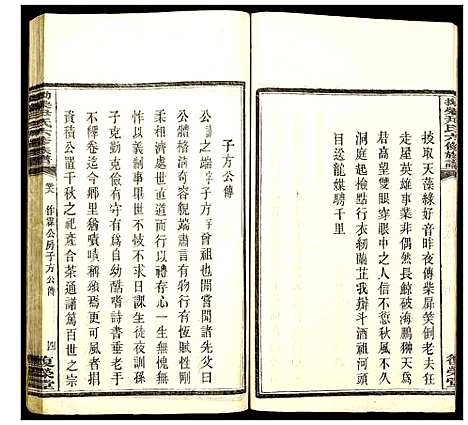 披取天藻綠好音昨夜傳柴扉笑倒老夫狂
走屋英雄事業非偶然長鯨破海鵬獅天
君高望雙眼寄眼中之人信不惡秋風不久
洞庭起撿點行衣紉蘭芷我辯斗酒祖河頭
目斷龍媒騁千里
子方公傳
公諱之端字子方予曾祖也間嘗聞諸祖父曰
公體格清奇容貌端肅言有物行有恆賦性剛
柔相濟處世直道而行存心一生無愧無
怍以義制事畢世不忮不求日課生徒夜訓孫
子克勤克儉有守有爲自幼酷嗜詩書垂老手
不釋卷迄今鄉里猶嘖嘖稱頌焉更可風者捐
資積公置千秋之祀產合茶通譜篤百世之宗
卷八
作霖公房子方公傳
四
復榮堂